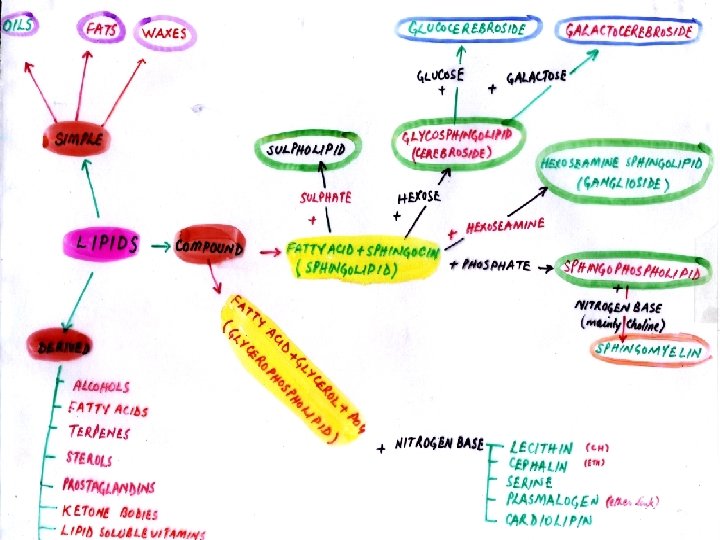 OILS
FATS
WAXES
GLUCOCEREBROSIDE
GALACTOCEREBROSIDE
GLUCOSE
+
+ GALACTOSE
SIMPLE
SULPHOLIPID
GLYCOSPHINGOLIPID
(CEREBROSIDE)
HEXOSEAMINE SPHINGOLIPID
(GANGLIOSIDE)
SULPHATE
+
HEXOSE
+
+ HEXOSEAMINE
LIPIDS
COMPOUND
FATTY ACID + SPHINGOCIN
(SPHINGOLIPID)
+ PHOSPHATE
SPHINGOPHOSPHOLIPID
+
NITROGEN BASE
(mainly choline)
SPHINGOMYELIN
FATTY ACID + GLYCEROL + PO4
(GLYCEROPHOSPHOLIPID)
DERIVED
ALCOHOLS
FATTY ACIDS
TERPENES
STEROLS
PROSTAGLANDINS
KETONE BODIES
LIPID SOLUBLE VITAMINS
+ NITROGEN BASE
LECITHIN (CH)
CEPHALIN (ETH)
SERINE
PLASMALOGEN (ether link)
CARDIOLIPIN